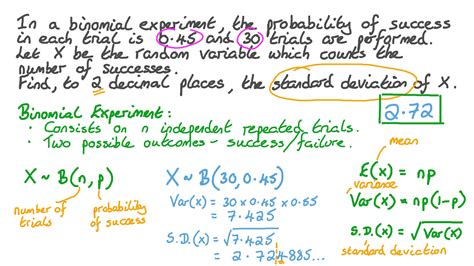 In a binomial experiment, the probability of success
in each trial is 0.45 and 30 trials are performed.
Let X be the random variable which counts the
number of successes.
Find, to 2 decimal places, the standard deviation of X.
2.72
Binomial Experiment:
• Consists on n independent repeated trials.
• Two possible outcomes - success/failure.
X ~ B(n, p)
number of trials
probability of success
X ~ B(30, 0.45)
Var(X) = 30 × 0.45 × 0.55
= 7.425
S.D.(X) = √7.425
= 2.724885...
mean
E(X) = np
variance
Var(X) = np(1-p)
S.D.(X) = √Var(X)
standard deviation